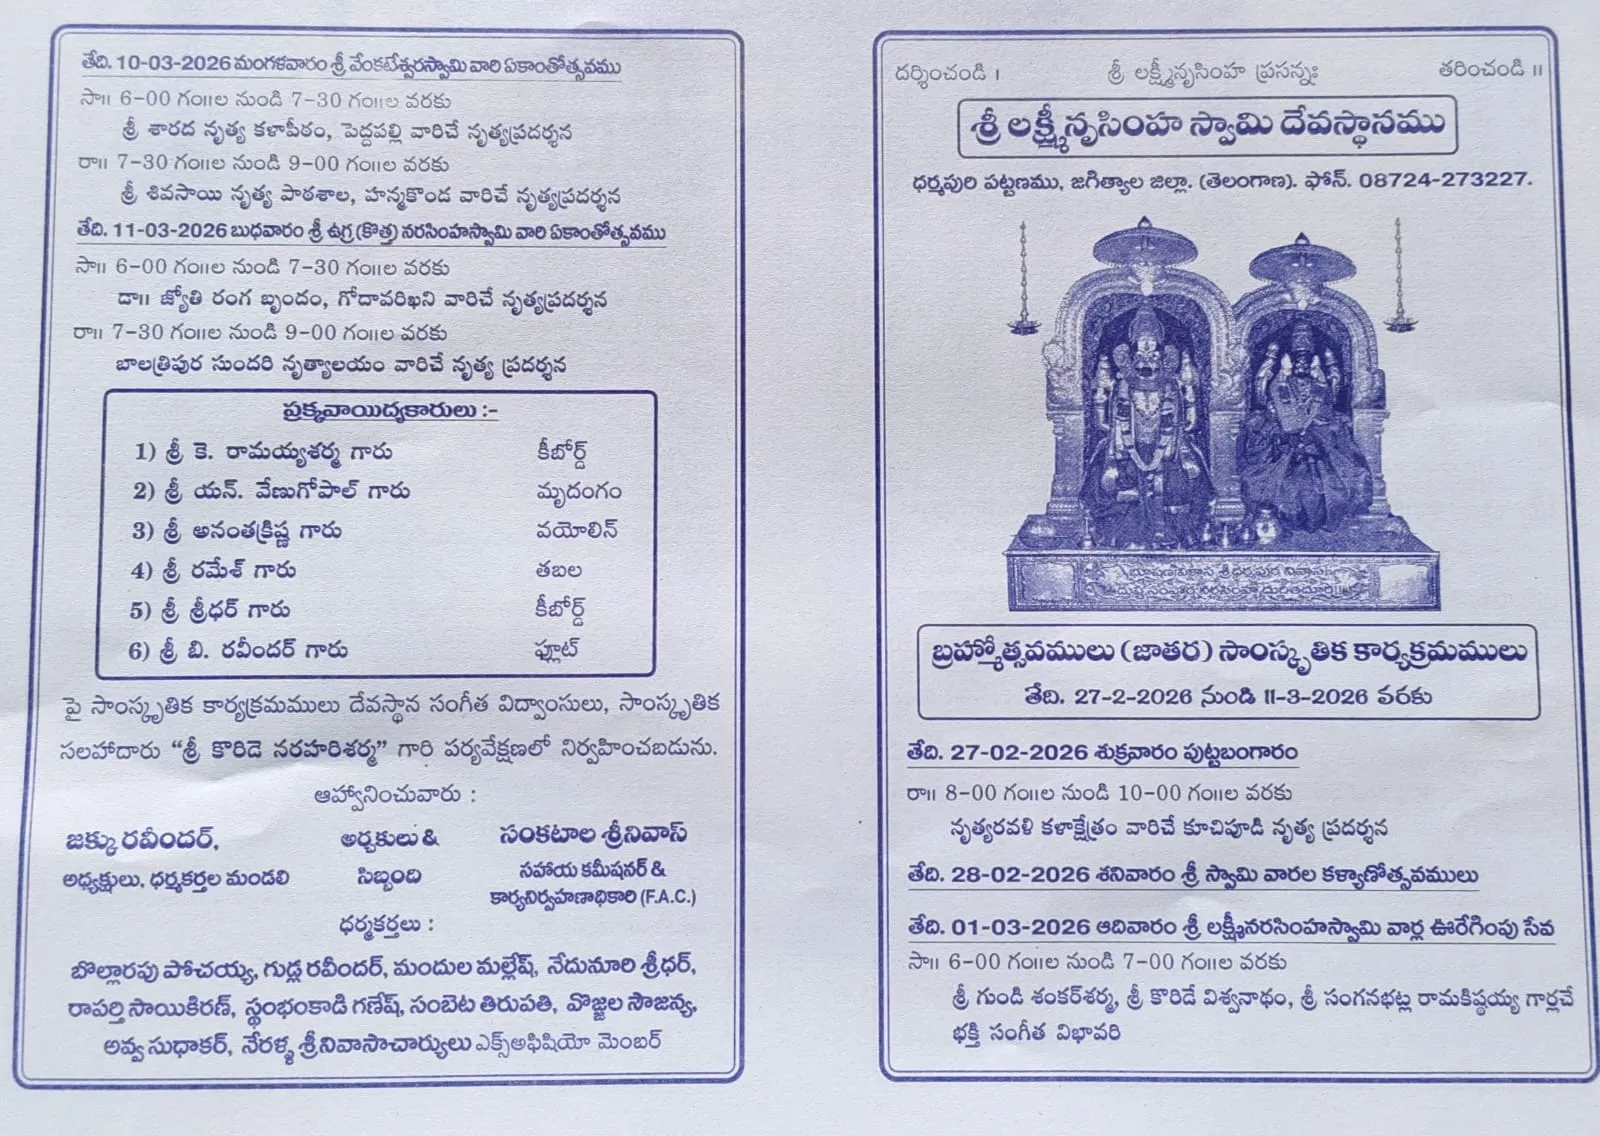 తేది. 10-03-2026 మంగళవారం శ్రీ వేంకటేశ్వరస్వామి వారి ఏకాంతోత్సవము
సా॥ 6-00 గం॥ల నుండి 7-30 గం॥ల వరకు
శ్రీ శారద నృత్య కళాపీఠం, పెద్దపల్లి వారిచే నృత్యప్రదర్శన
రా॥ 7-30 గం॥ల నుండి 9-00 గం॥ల వరకు
శ్రీ శివసాయి నృత్య పాఠశాల, హన్మకొండ వారిచే నృత్యప్రదర్శన
తేది. 11-03-2026 బుధవారం శ్రీ ఉగ్ర (కొత్త) నరసింహస్వామి వారి ఏకాంతోత్సవము
సా॥ 6-00 గం॥ల నుండి 7-30 గం॥ల వరకు
డా॥ జ్యోతి రంగ బృందం, గోదావరిఖని వారిచే నృత్యప్రదర్శన
రా॥ 7-30 గం॥ల నుండి 9-00 గం॥ల వరకు
బాలత్రిపుర సుందరి నృత్యాలయం వారిచే నృత్య ప్రదర్శన
ప్రక్కవాయిద్యకారులు :-
1) శ్రీ కె. రామయ్యశర్మ గారు కీబోర్డ్
2) శ్రీ యన్. వేణుగోపాల్ గారు మృదంగం
3) శ్రీ అనంతక్రిష్ణ గారు వయోలిన్
4) శ్రీ రమేశ్ గారు తబల
5) శ్రీ శ్రీధర్ గారు కీబోర్డ్
6) శ్రీ బి. రవీందర్ గారు ఫ్లూట్
పై సాంస్కృతిక కార్యక్రమములు దేవస్థాన సంగీత విద్వాంసులు, సాంస్కృతిక
సలహాదారు “శ్రీ కొరిడె నరహరిశర్మ” గారి పర్యవేక్షణలో నిర్వహించబడును.
ఆహ్వానించువారు :
జక్కు రవీందర్, అర్చకులు & సంకటాల శ్రీనివాస్
అధ్యక్షులు, ధర్మకర్తల మండలి సిబ్బంది సహాయ కమీషనర్ &
కార్యనిర్వహణాధికారి (F.A.C.)
ధర్మకర్తలు :
బొల్లారపు పోచయ్య, గుడ్ల రవీందర్, మందుల మల్లేష్, నేదునూరి శ్రీధర్,
రాపర్తి సాయికిరణ్, స్థంభంకాడి గణేష్, సంబెట తిరుపతి, వొజ్జల సౌజన్య,
అవ్వ సుధాకర్, నేరళ్ళ శ్రీనివాసాచార్యులు ఎక్స్అఫిషియో మెంబర్
దర్శించండి । శ్రీ లక్ష్మీనృసింహ ప్రసన్నః తరించండి ॥
శ్రీ లక్ష్మీనృసింహ స్వామి దేవస్థానము
ధర్మపురి పట్టణము, జగిత్యాల జిల్లా. (తెలంగాణ). ఫోన్. 08724-273227.
బ్రహ్మోత్సవములు (జాతర) సాంస్కృతిక కార్యక్రమములు
తేది. 27-2-2026 నుండి 11-3-2026 వరకు
తేది. 27-02-2026 శుక్రవారం పుట్టబంగారం
రా॥ 8-00 గం॥ల నుండి 10-00 గం॥ల వరకు
నృత్యరవళి కళాక్షేత్రం వారిచే కూచిపూడి నృత్య ప్రదర్శన
తేది. 28-02-2026 శనివారం శ్రీ స్వామి వారల కళ్యాణోత్సవములు
తేది. 01-03-2026 ఆదివారం శ్రీ లక్ష్మీనరసింహస్వామి వార్ల ఊరేగింపు సేవ
సా॥ 6-00 గం॥ల నుండి 7-00 గం॥ల వరకు
శ్రీ గుండి శంకర్‌శర్మ, శ్రీ కొరిడే విశ్వనాథం, శ్రీ సంగనభట్ల రామకిష్ఠయ్య గార్లచే
భక్తి సంగీత విభావరి